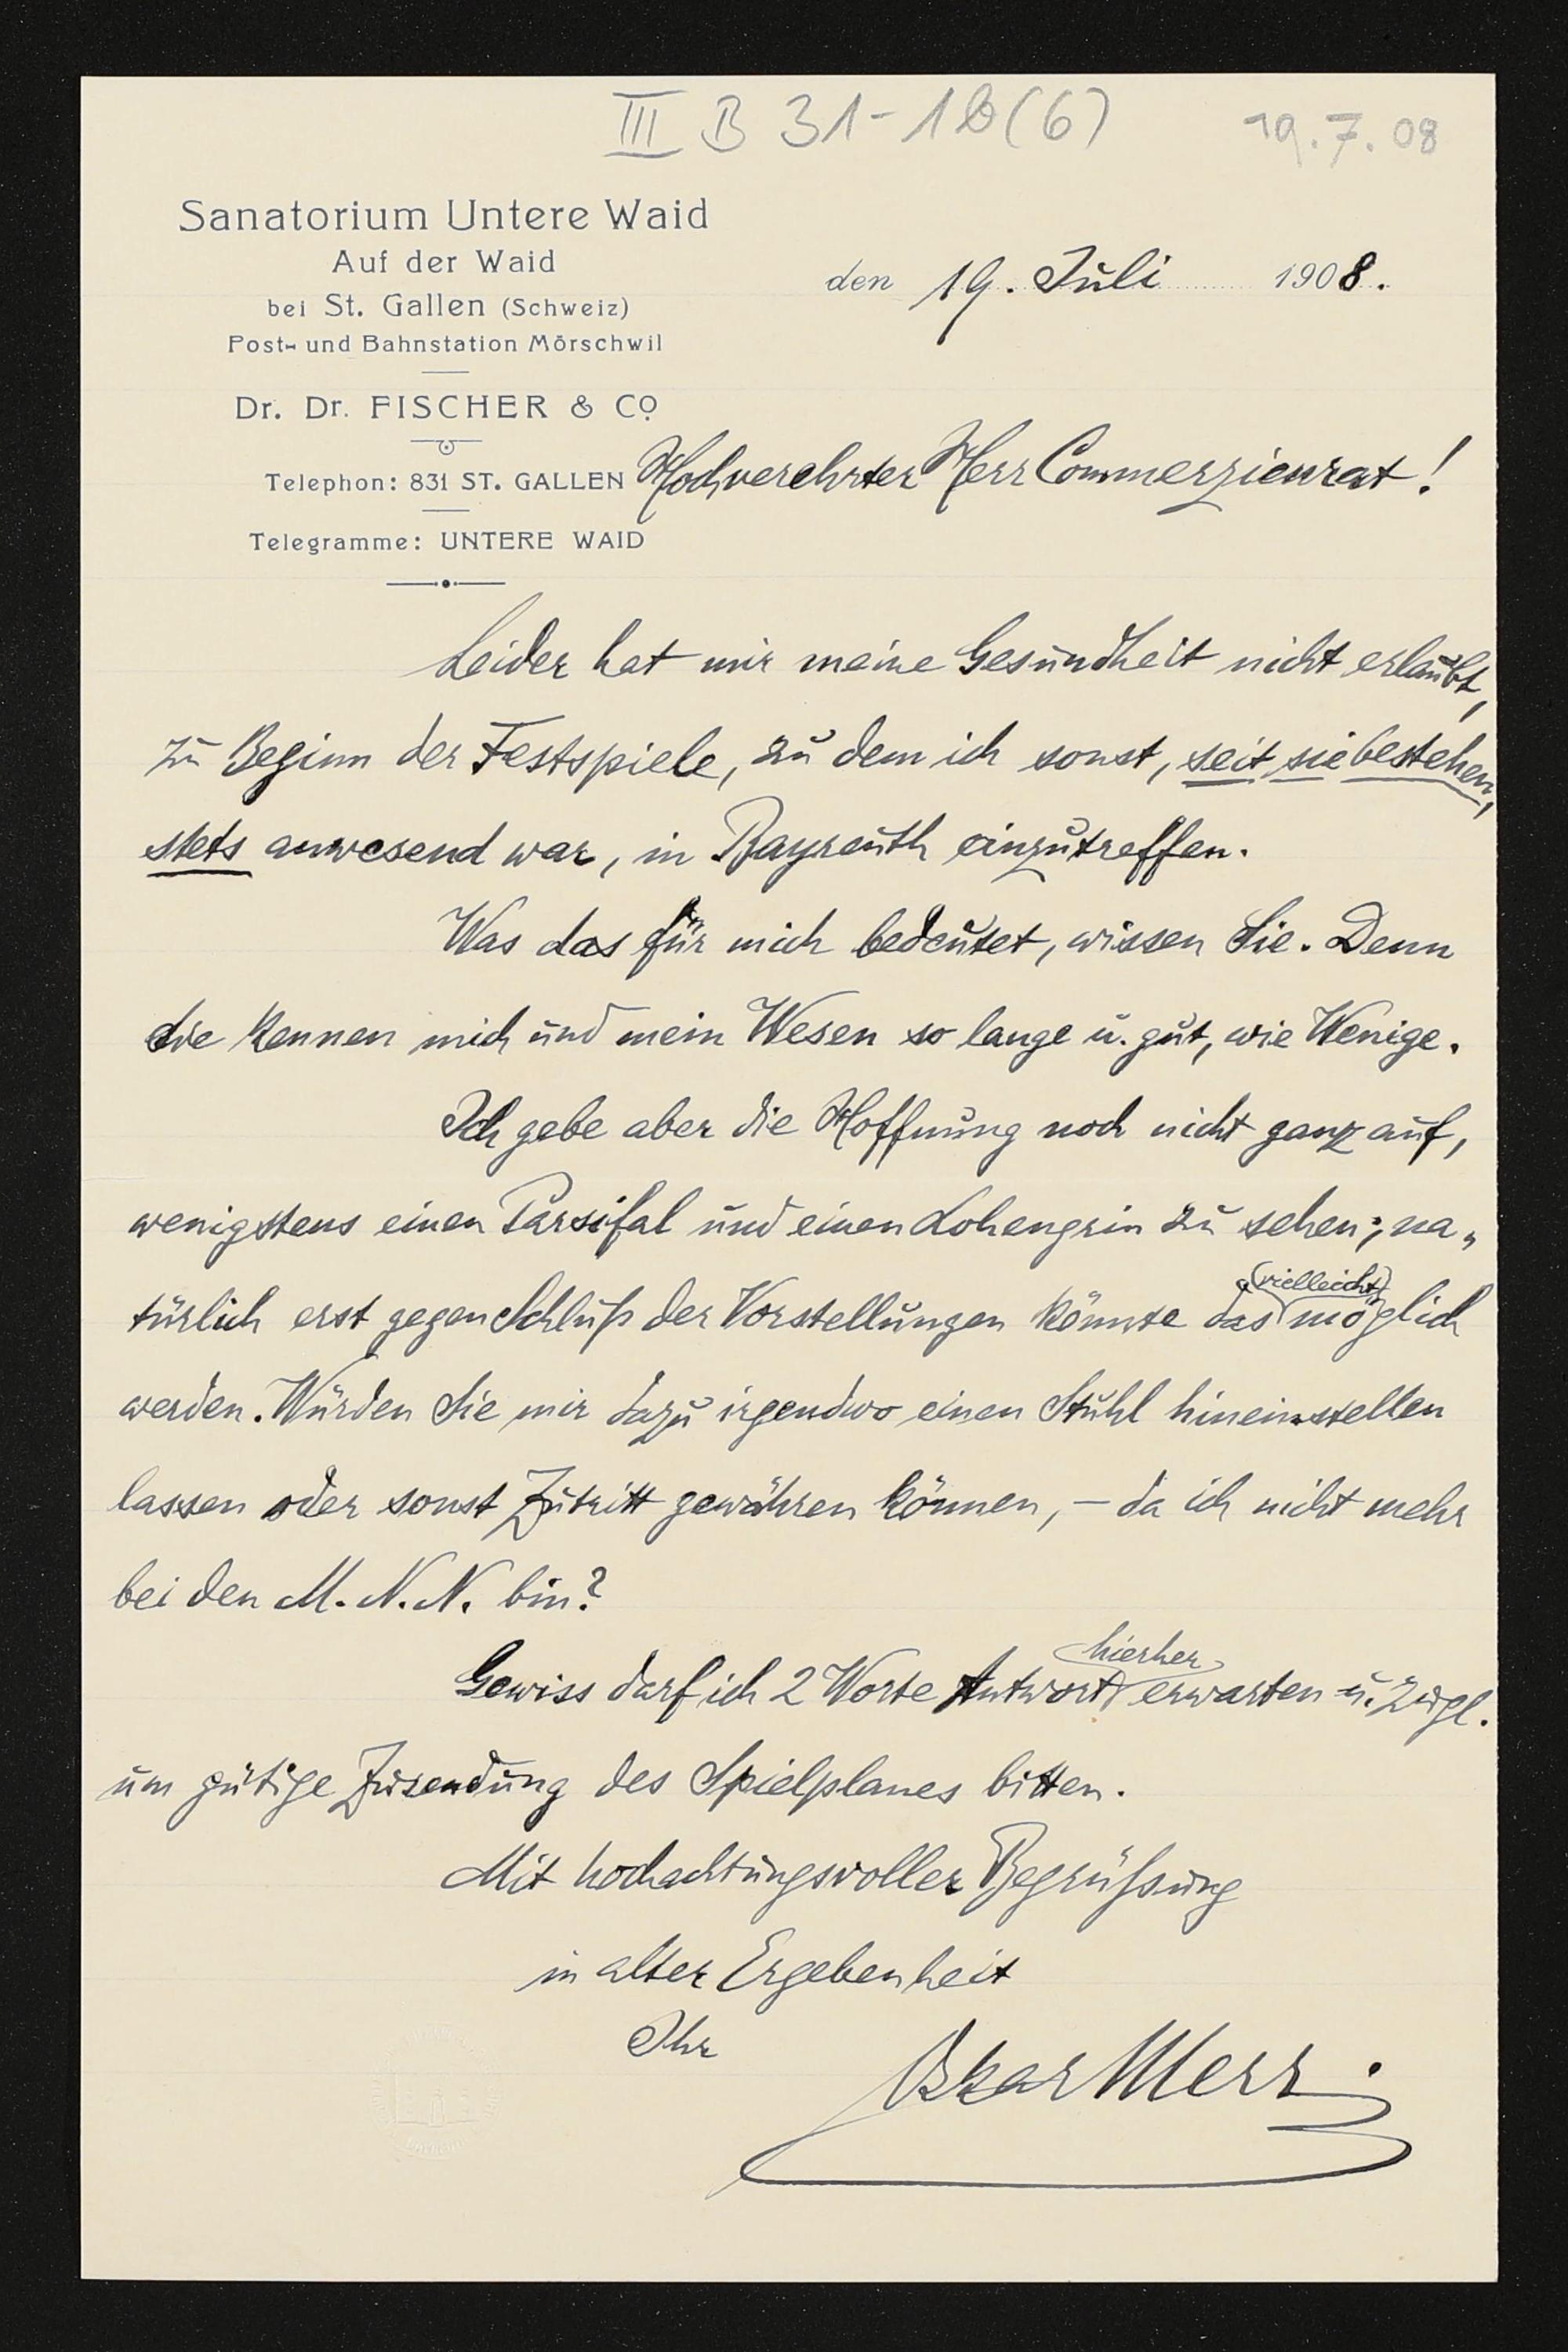 III B 31-18(6)
19.7.08
Sanatorium Untere Waid
Auf der Waid
bei St. Gallen (Schweiz)
Post- und Bahnstation Mörschwil
den 19. Juli 1908.
Dr. Dr. FISCHER & Co
Telephon: 831 ST. GALLEN
Telegramme: UNTERE WAID
Hochverehrter Herr Commerzienrat!
Leider hat mir meine Gesundheit nicht erlaubt,
zu Beginn der Festspiele, zu dem ich sonst, seit sie bestehen,
stets anwesend war, in Bayreuth einzutreffen.
Was das für mich bedeutet, wissen Sie. Denn
Sie kennen mich und mein Wesen so lange u. gut, wie Wenige.
Ich gebe aber die Hoffnung noch nicht ganz auf,
wenigstens einen Parsifal und einen Lohengrin zu sehen; na„
türlich erst gegen Schluß der Vorstellungen könnte das (vielleicht) möglich
werden. Würden Sie mir dazu irgendwo einen Stuhl hineinstellen
lassen oder sonst Zutritt gewähren können, – da ich nicht mehr
bei den M. N. N. bin?
Gewiss darf ich 2 Worte Antwort hierher erwarten u. zugl.
um gütige Zusendung des Spielplanes bitten.
Mit hochachtungsvoller Begrüßung
in alter Ergebenheit
Ihr
Oskar Merz.